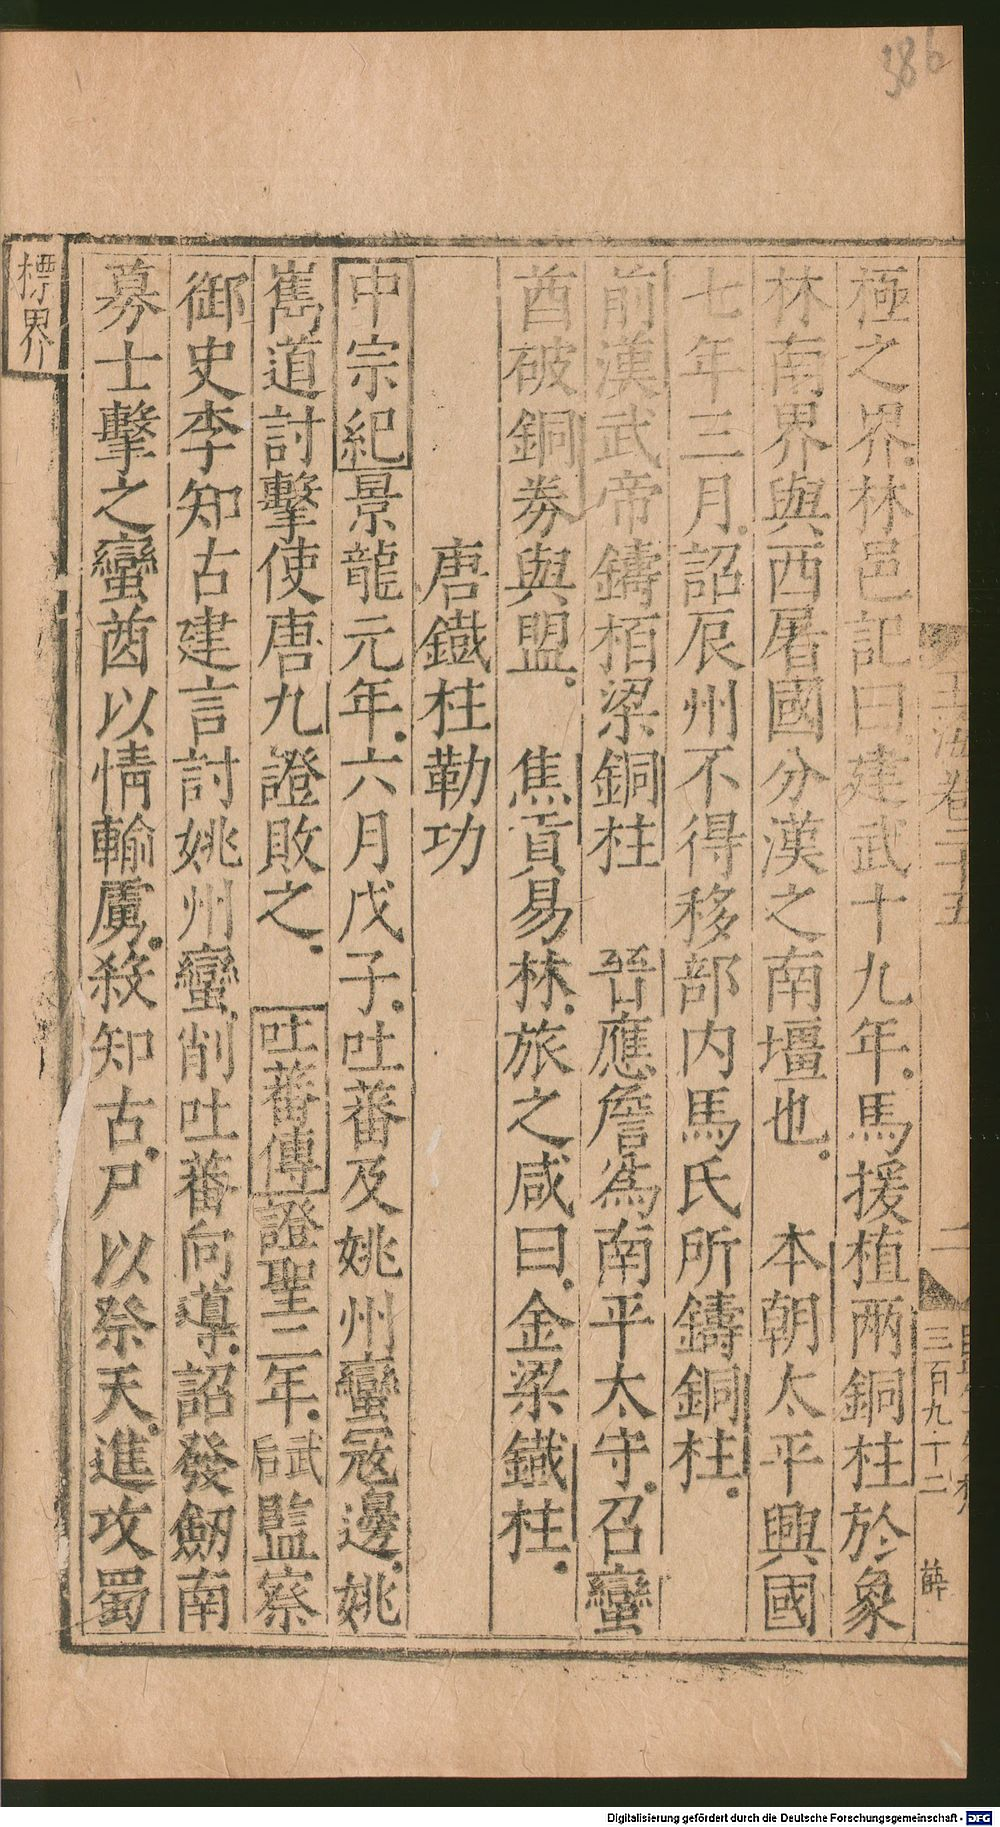 386
極之界。林邑記曰建武十九年。馬援植兩銅柱於象
林南界與西屠國分漢之南壃也。 本朝太平興國
七年三月。詔辰州不得移部内馬氏所鑄銅柱。
前漢武帝鑄栢梁銅柱 晉應詹為南平太守。召蠻
酋破銅券與盟。 焦貢易林。旅之咸曰。金梁鐵柱。
唐鐵柱勒功
中宗紀景龍元年。六月戊子。吐蕃及姚州蠻寇邊。姚
嶲道討擊使唐九證敗之。 吐蕃傳證聖二年。武后監察
御史李知古建言討姚州蠻。削吐蕃向導。詔發劒南
募士擊之蠻酋以情輸虜。殺知古。尸以祭天。進攻蜀
標界
玉海卷二十五
二
三百九十二
薛
Digitalisierung gefördert durch die Deutsche Forschungsgemeinschaft - DFG